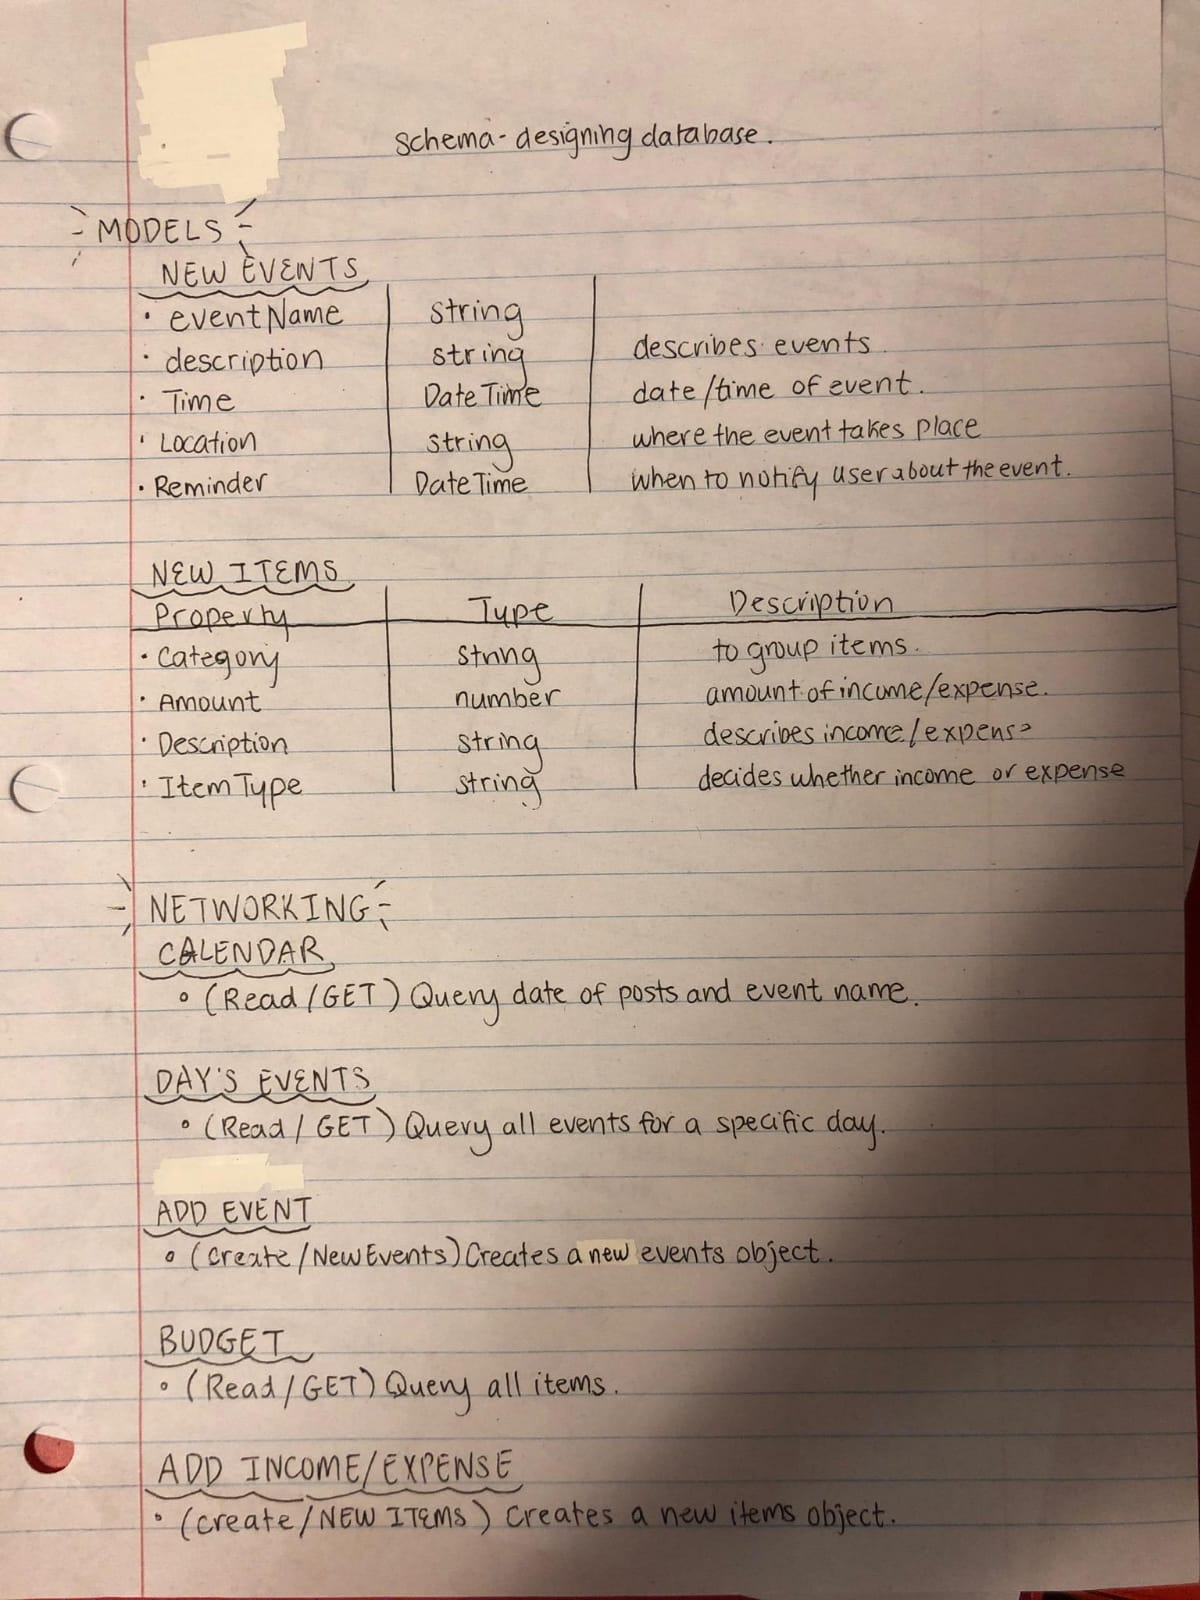 schema - designing database.
MODELS
NEW EVENTS
• eventName string
• description string describes events
• Time DateTime date/time of event.
• Location string where the event takes place
• Reminder DateTime when to notify user about the event.
NEW ITEMS
Property Type Description
• Category string to group items.
• Amount number amount of income/expense.
• Description string describes income/expense
• ItemType string decides whether income or expense
NETWORKING
CALENDAR
• (Read/GET) Query date of posts and event name.
DAY'S EVENTS
• (Read/GET) Query all events for a specific day.
ADD EVENT
• (create/NewEvents) Creates a new events object.
BUDGET
• (Read/GET) Query all items.
ADD INCOME/EXPENSE
• (create/NEW ITEMS) Creates a new items object.